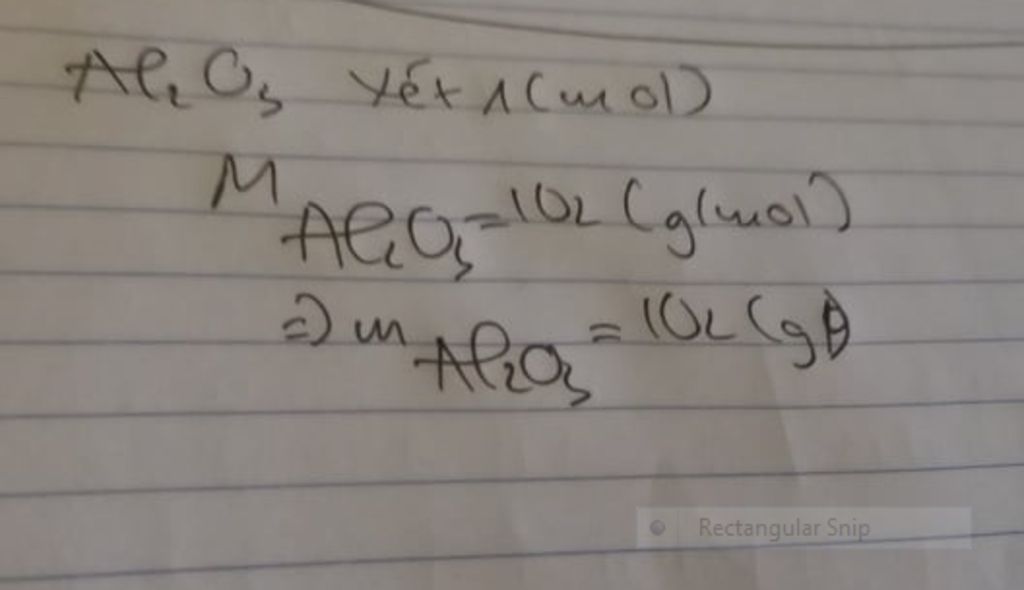 Al₂O₃ xét 1(mol)
M Al₂O₃ = 102 (g/mol)
=> m Al₂O₃ = 102 (g)
Rectangular Snip